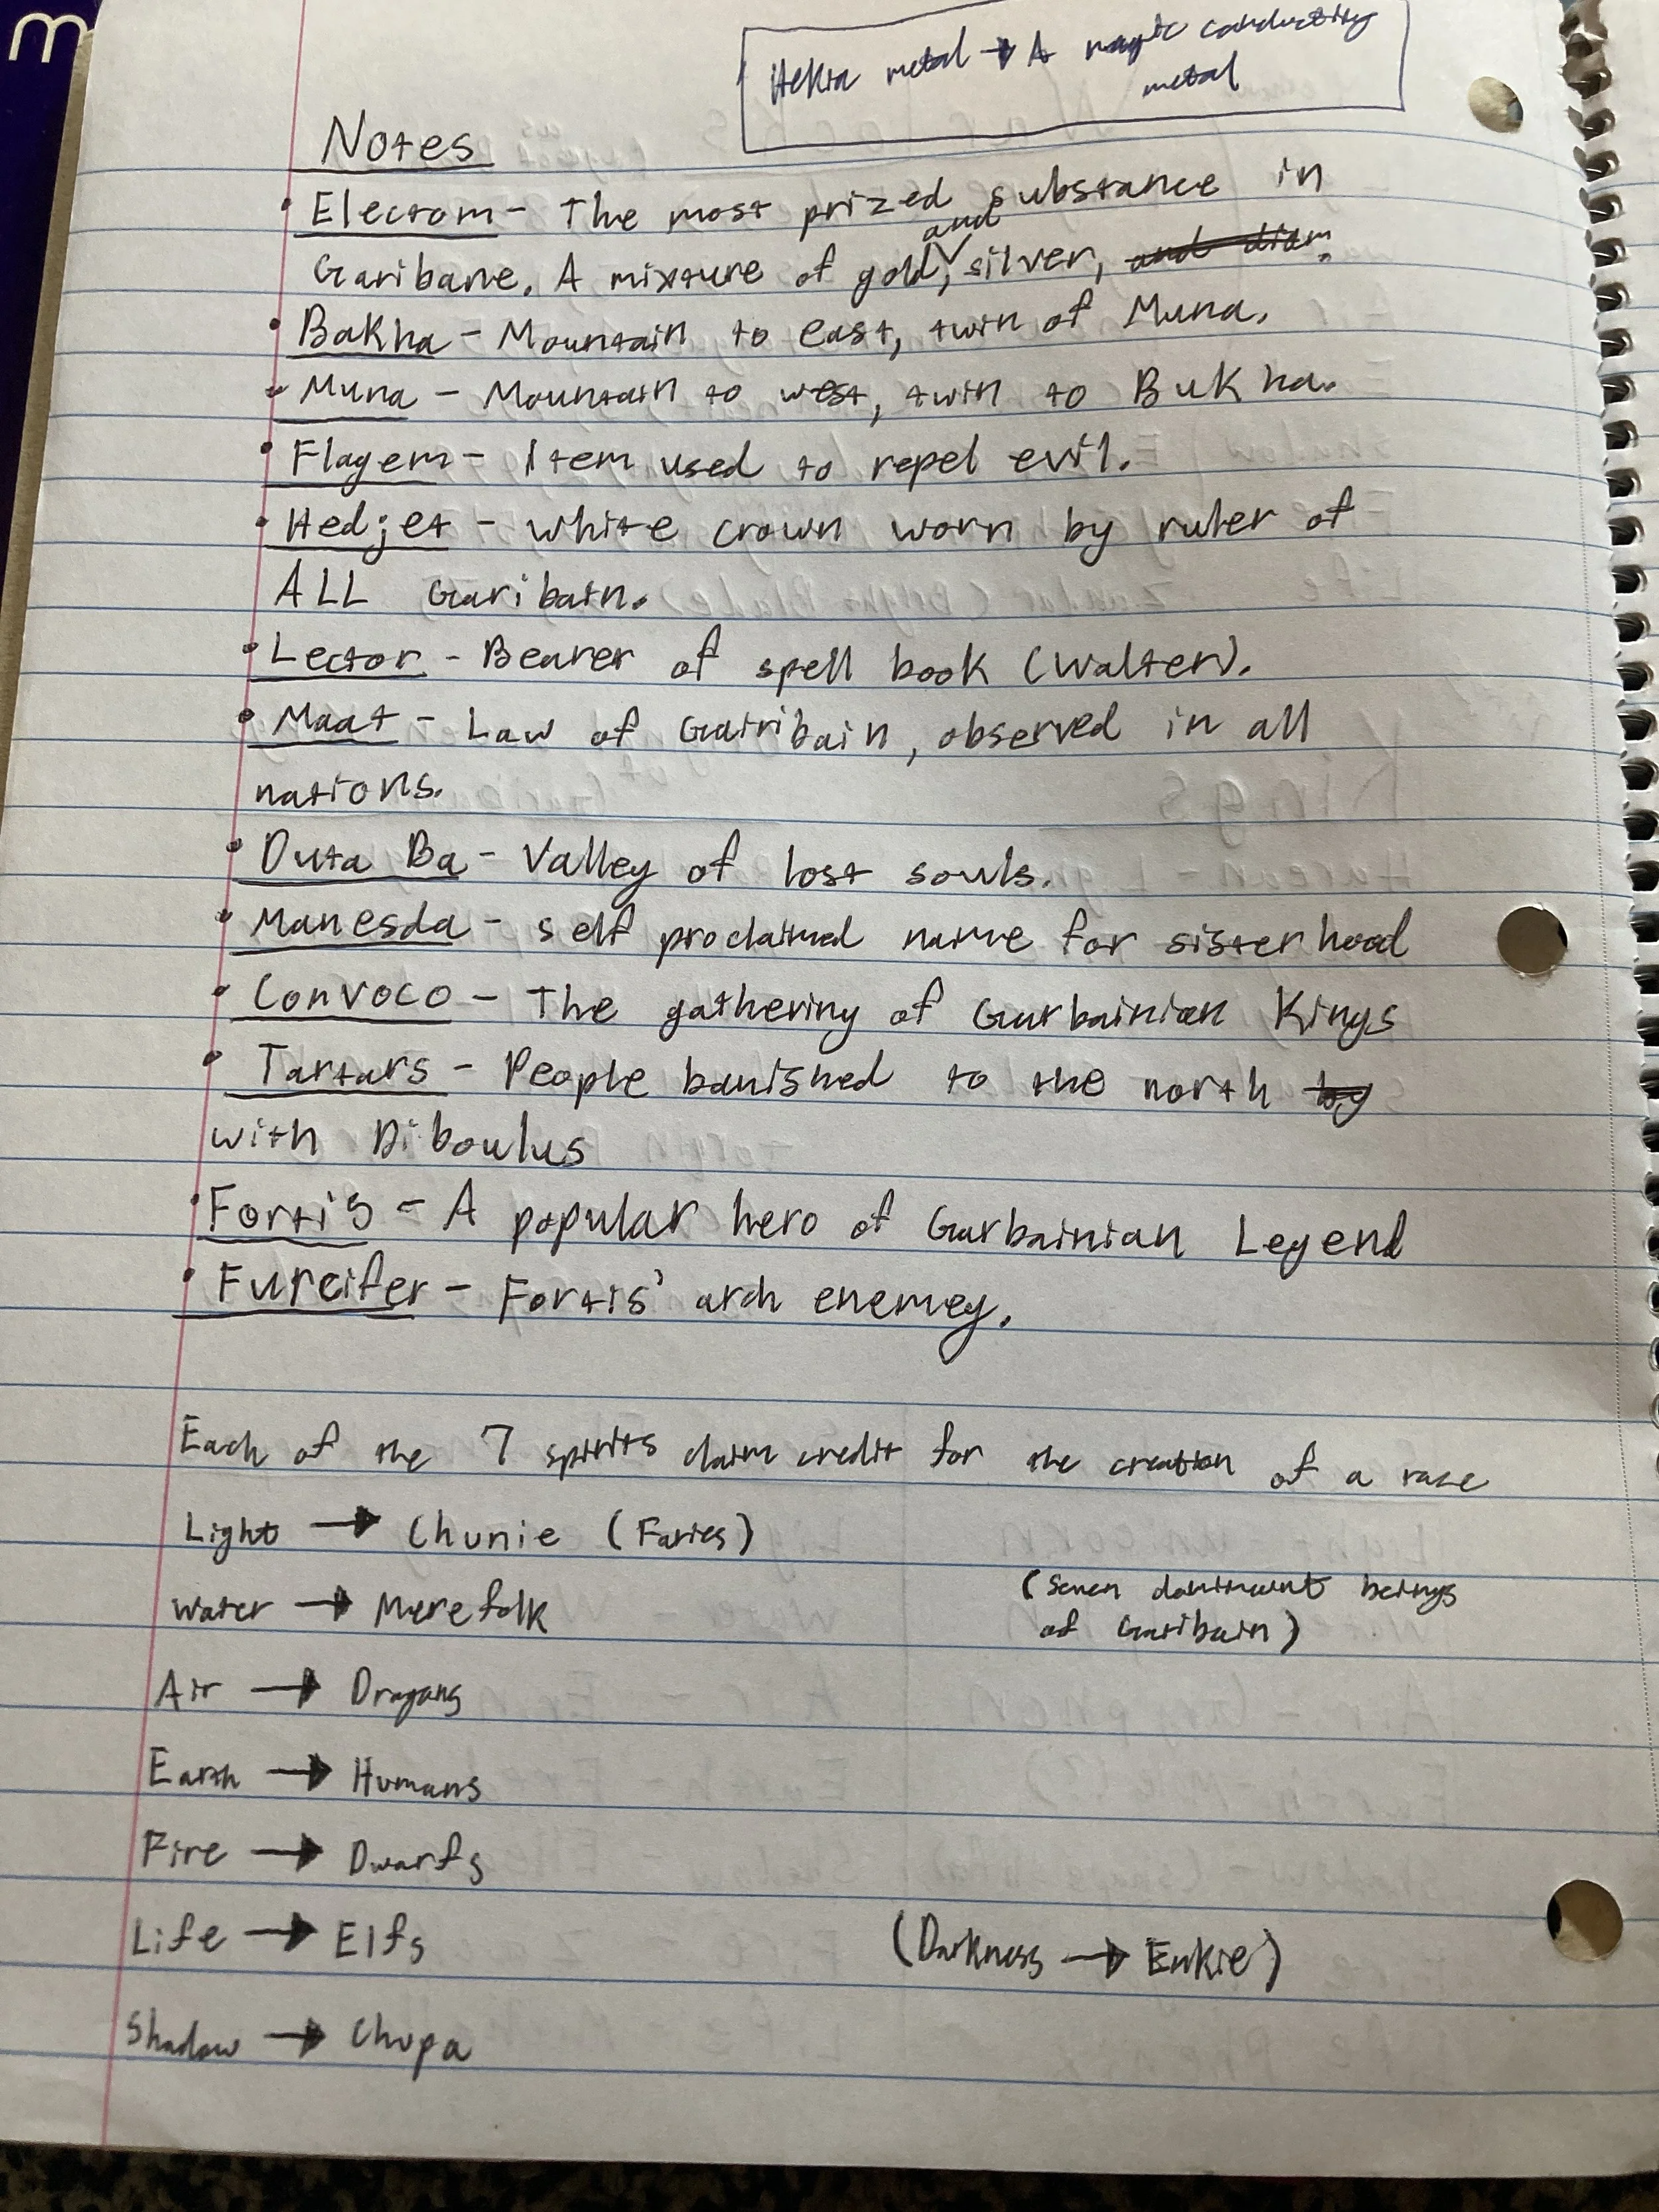 m
Hekia metal → A magic conducting
metal
Notes
• Electom - The most prized substance in
Garibane. A mixture of gold, and silver, and diam.
• Bakha - Mountain to east, twin of Muna.
• Muna - Mountain to west, twin to Bukha.
• Flagem - Item used to repel evil.
• Hedjet - White crown worn by ruler of
ALL Garibain.
• Lector - Bearer of spell book (Walter).
• Maat - Law of Gairibain, observed in all
nations.
• Duta Ba - Valley of lost souls.
• Manesda - self proclaimed name for sisterhood
• Convoco - The gathering of Garbainian Kings
• Tartars - People banished to the north by
with Diboulus
• Fortis - A popular hero of Garbainian Legend
• Furcifer - Fortis' arch enemey.
Each of the 7 spirits claim credit for the creation of a race
Light → Chunie (Faries)
Water → Merefolk
(Seven dominant beings
of Garibain)
Air → Dragons
Earth → Humans
Fire → Dwarfs
Life → Elfs
(Darkness → Enkie)
Shadow → Chupa